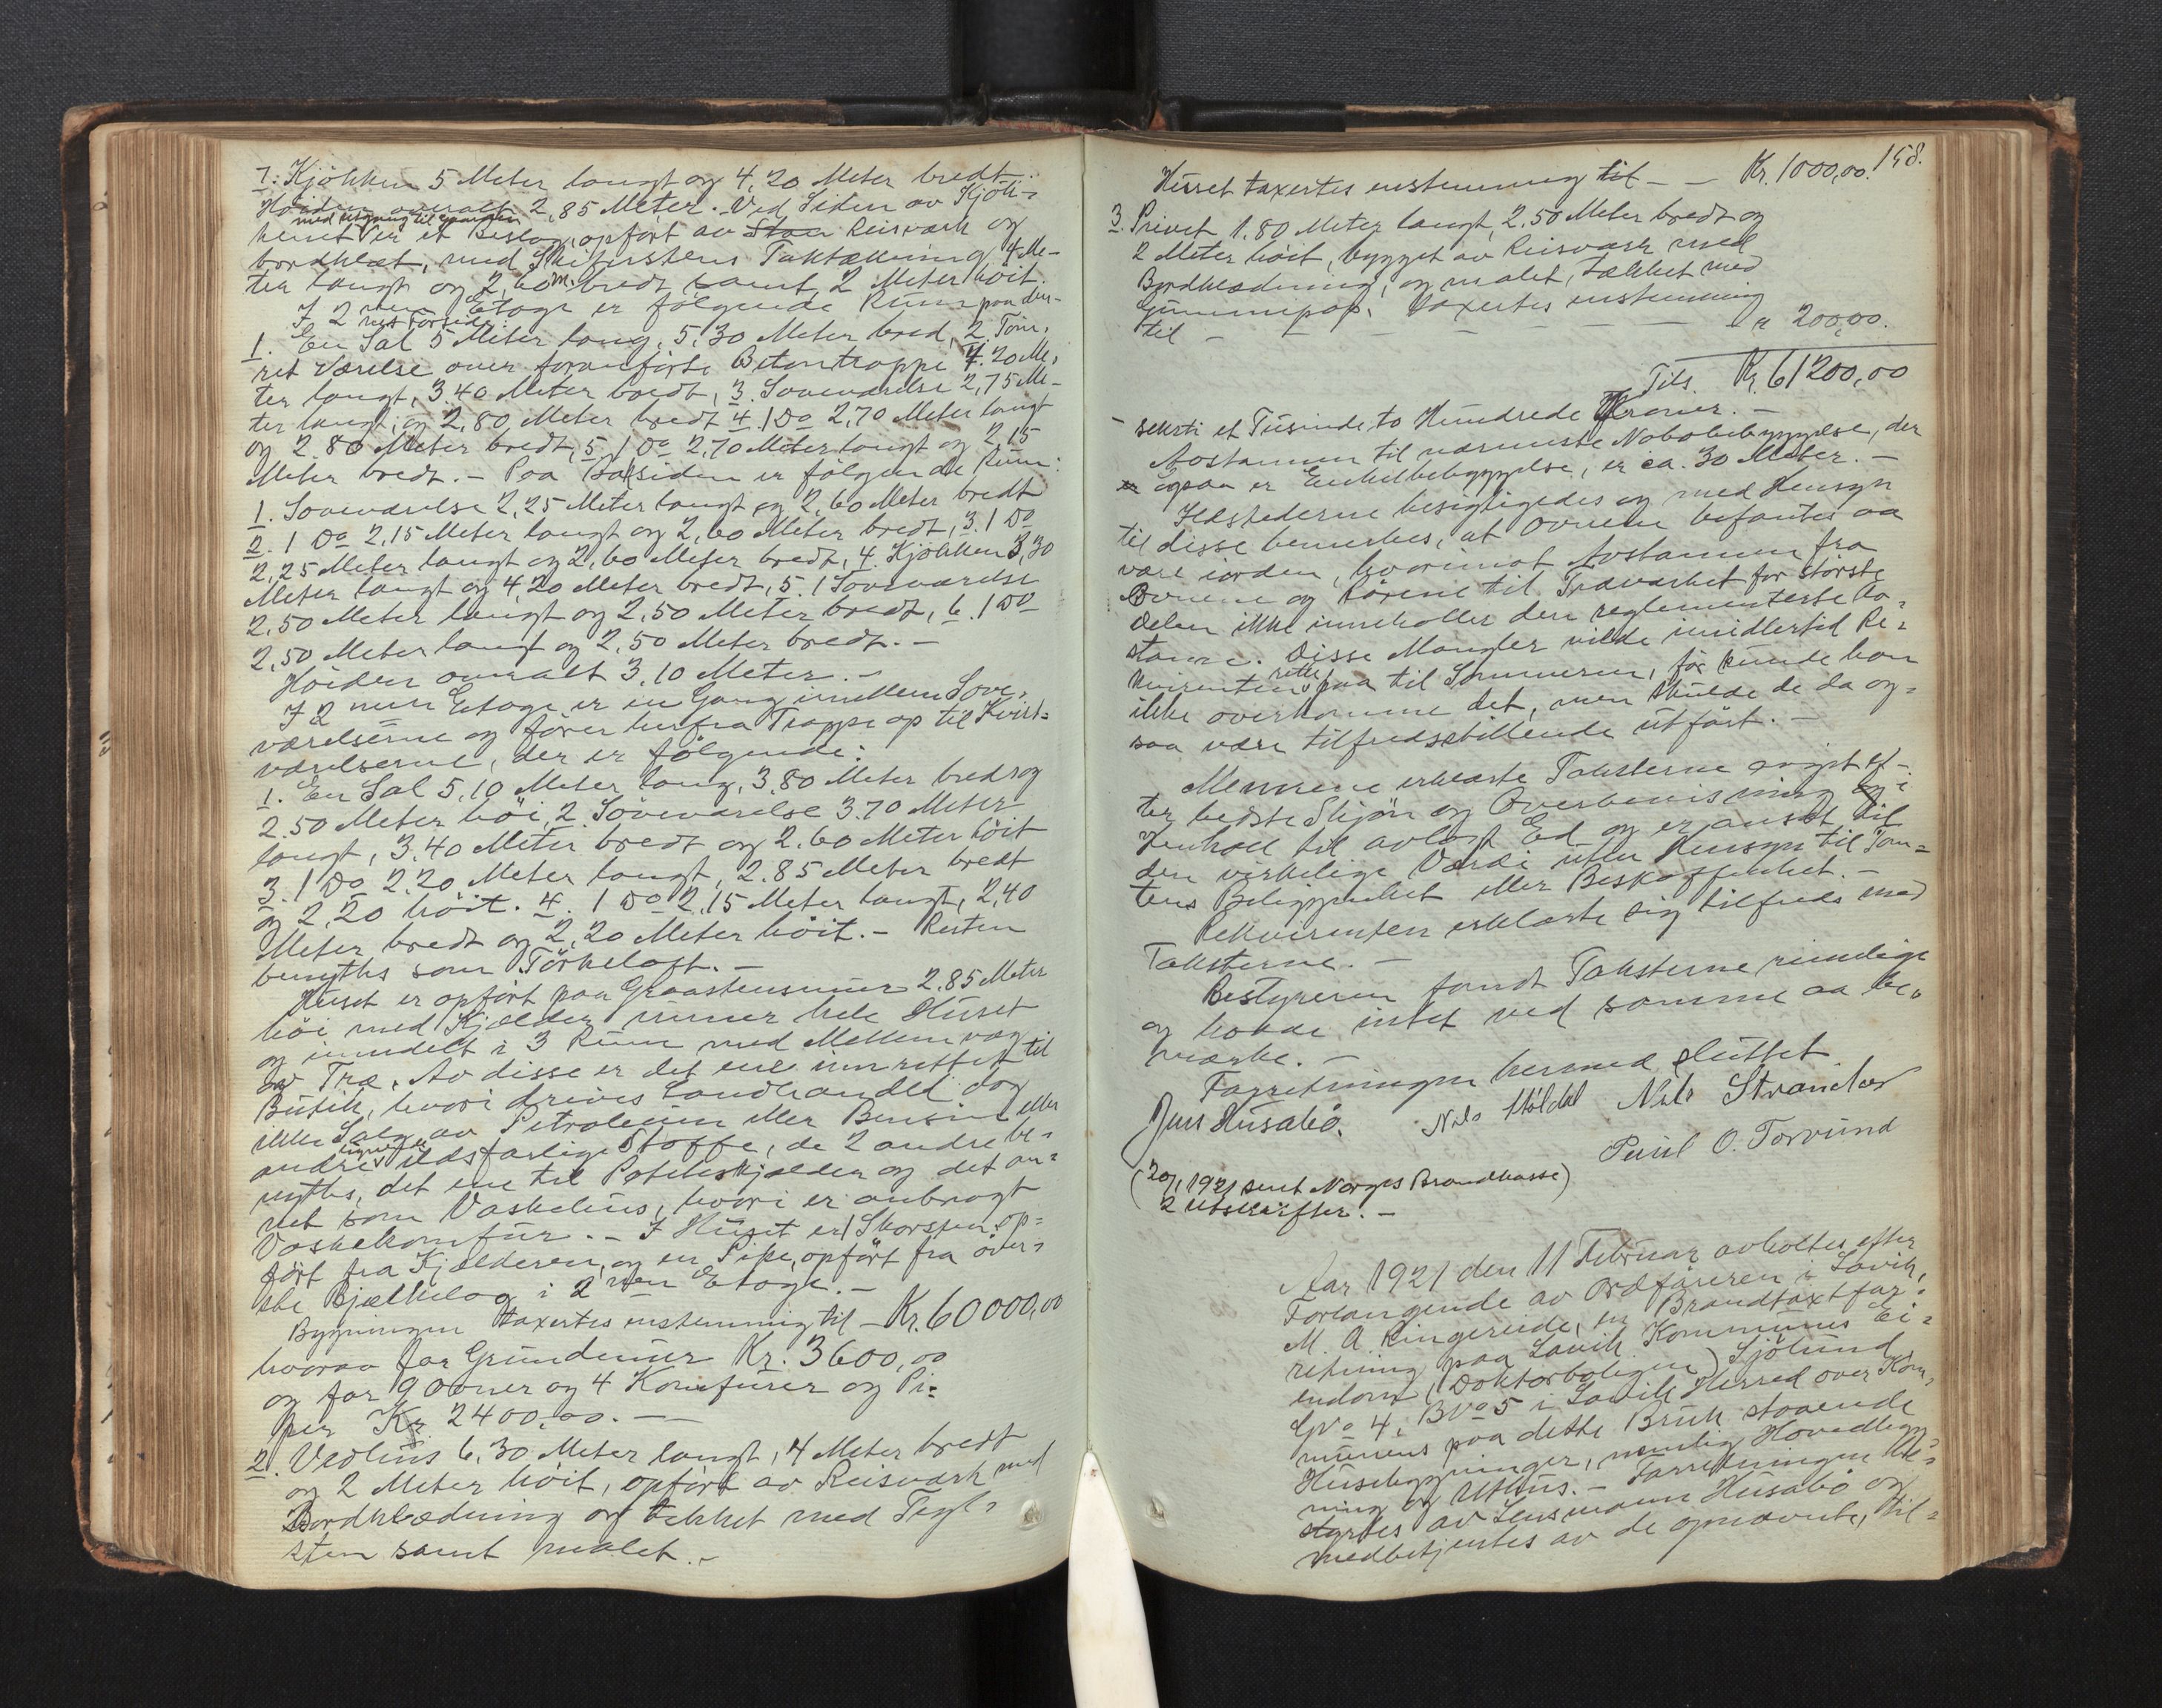 7. Kjökken 5 Meter langt og 4,20 Meter bredt.
Höiden overalt 2,85 Meter. Ved Siden av Kjök-
med utgang til gangen
kenet er et Beslag, opført av Reisværk og
bordklæt, med Skifersteins Taktækning, 4 Me-
ter langt og 2,60 m. bredt samt 2 Meter höit.
I 2 nen Etage er fölgende Rum paa den-
nes Forside:
1. En Sal 5 Meter lang, 5,30 Meter bred, 2. Tom,
ret Værelse over foranförte Betontrappe 4.20 Me,
ter langt, 3.40 Meter bredt, 3. Soveværelse 2,75 Me-
ter langt, og 2,80 Meter bredt 4. 1 Do 2,70 Meter langt
og 2.80 Meter bredt, 5. 1 Do 2,70 Meter langt og 2,15
Meter bredt. - Paa Baksiden er fölgende Rum:
1. Soveværelse 2,25 Meter langt og 2,60 Meter bredt
2. 1 Do 2,15 Meter langt og 2,60 Meter bredt, 3. 1 Do
2,25 Meter langt og 2,60 Meter bredt, 4. Kjökken 3,30
Meter langt og 4,20 Meter bredt, 5. 1 Soveværelse
2,50 Meter langt og 2,50 Meter bredt, 6. 1 Do
2,50 Meter langt og 2,50 Meter bredt. -
Höiden overalt 3.10 Meter. -
I 2 nen Etage er en Gang imellem Sove,
værelserne og förer herfra Trappe op til Kvist=
værelserne, der er fölgende:
1. En Sal 5,10 Meter lang, 3,80 Meter bred og
2.50 Meter höi, 2. Soveværelse 3.70 Meter
langt, 3.40 Meter bredt og 2.60 Meter höit
3. 1 Do 2.20 Meter langt, 2.85 Meter bredt
og 2,20 höit. 4. 1 Do 2,15 Meter langt, 2,40
Meter bredt og 2,20 Meter höit. - Resten
benyttes som Törkeloft. -
Huset er opfört paa Graastensmur 2.85 Meter
höi med Kjelder under hele Huset
og inndelt i 3 Rum med Mellemvæg
av Træ. Av disse er det ene innrettet til
Butik, hvori drives Landhandel dog
ikke Salg av Petroleum eller Bensin eller
andre lignende ildsfarlige Stoffe, de 2 andre be-
nyttes, det ene til Poteteskjelder og det an=
net som Vaskehus, hvori er anbragt
Vaskekomfur. - I Huset er 1 Skorsten op=
fört fra Kjelderen, og en Pipe, opfört fra över-
ste Bjelkelag i 2 nen Etage. -
Bygningen taxertes enstemmig til - Kr. 60000,00
hvorav for Grundmur Kr. 3600,00
og for 9 Ovner og 4 Komfurer og Pi=
per Kr. 2400,00. -
2. Vedhus 6,30 Meter langt, 4 Meter bredt
og 2 Meter höit, opfört av Reisværk med
Bordklædning og tekket med Tegl-
sten samt malet. -
158.
Huset taxertes enstemmig til - - Kr. 1000,00.
3. Privet 1.80 Meter langt, 2,50 Meter bredt og
2 Meter höit, bygget av Reisværk med
Bordklædning, og malet, tækket med
Gummipap. Taxertes enstemmig
til - - - - - " 200,00.
Tils. Kr. 61200,00
- seksti et Tusinde, to Hundrede Kroner. -
Avstannen til nærmeste Nabobebyggelse, der
ogsaa er Enkelbebyggelse, er ca. 30 Meter. -
Ildstederne besigtigedes og med Hensyn
til disse bemerkes, at Ovnene befantes aa
være iorden, hvorimot Avstannen fra
Ovnene og Rörene til Træverket for störste
Delen ikke inneholder den reglementerte Av=
stann. Disse Mangler vilde imidlertid Re=
kvirenten rette paa til Sommeren, för kunde han
ikke overkomme det, men skulde de da og=
saa være tilfredsstillende utfört. -
Mennene erklærte Taksterne avgit ef-
ter bedste Skjön og Overbevisning og i
Henhold til avlagt Ed og er ansat til
den virkelige Værdi uten Hensyn til Tom=
tens Beliggenhet eller Beskaffenhet. -
Rekvirenten erklærte sig tilfreds med
Taksterne. -
Bestyreren fandt Taksterne rimelige
og havde intet ved samme aa be,
mærke. -
Forretningen hermed sluttet.
Jens Husabö. Nils Höldal Nils Strandos
Poul O. Torvund
(20/1 1921 sent Norges Brandkasse)
2 Utskrifter. -
Aar 1921 den 11 Februar avholtes efter
Forlangende av Ordföreren i Lavik,
M. A. Ringereide, en Brandtaxtfor-
retning paa Lavik Kommunes Ei=
endom (Doktorboligen) Sjölund
GNo 4, BNo 5 i Lavik Herred over Kom,
munens paa dette Bruk staaende
Husebygninger, nemlig Hovedbyg=
ning og Uthus. - Forretningen be=
styrtes av Lensmann Husabö og
medbetjentes av de opnævnte, til=